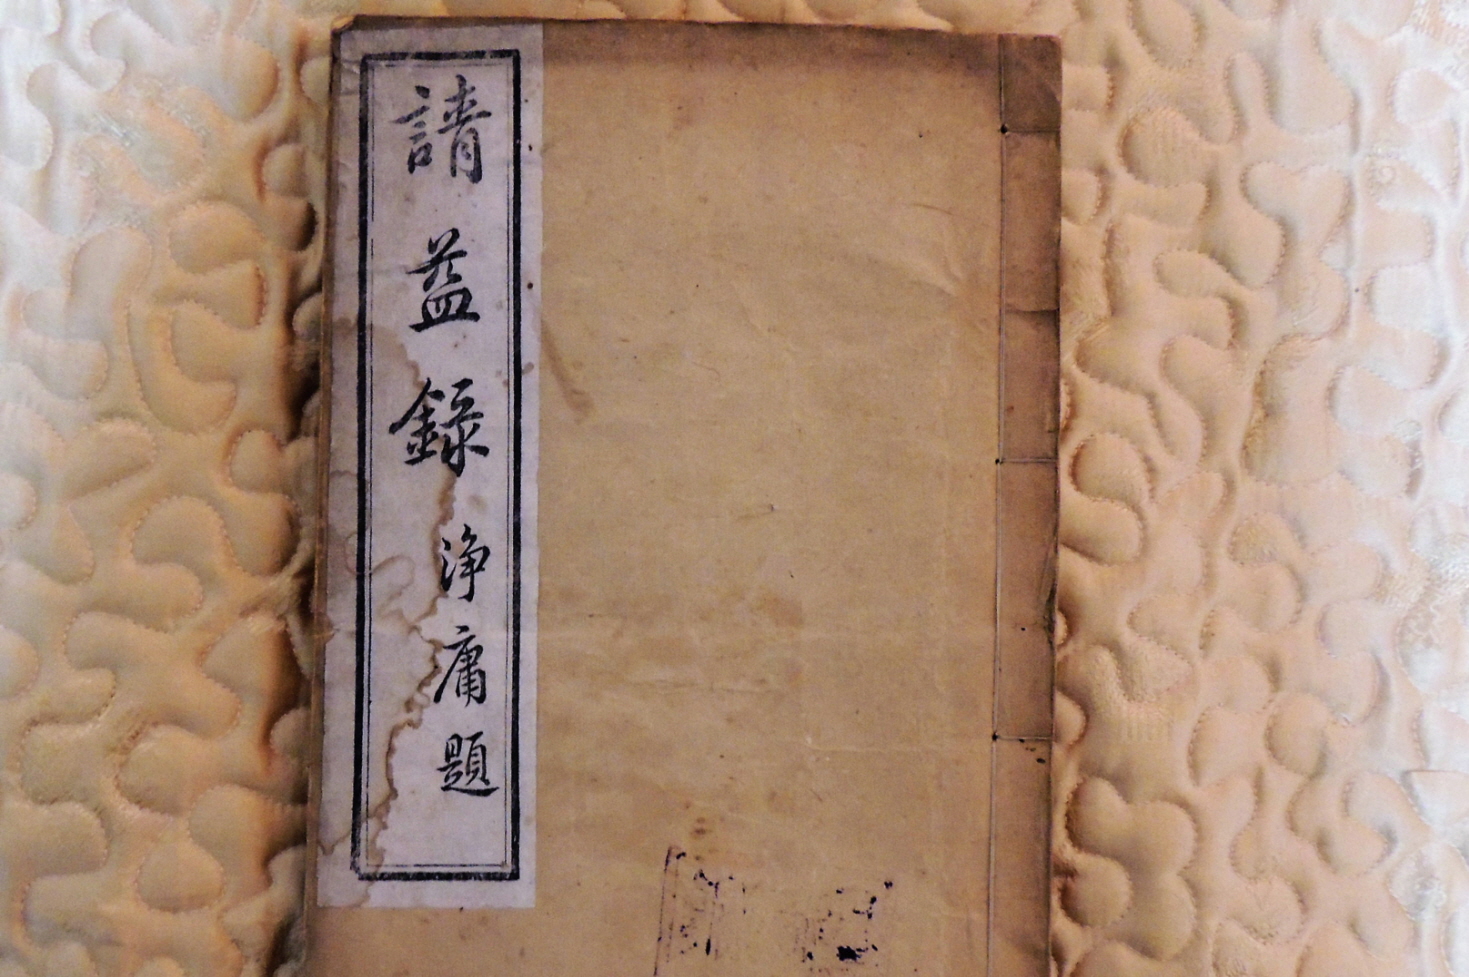 請益錄
淨庸題